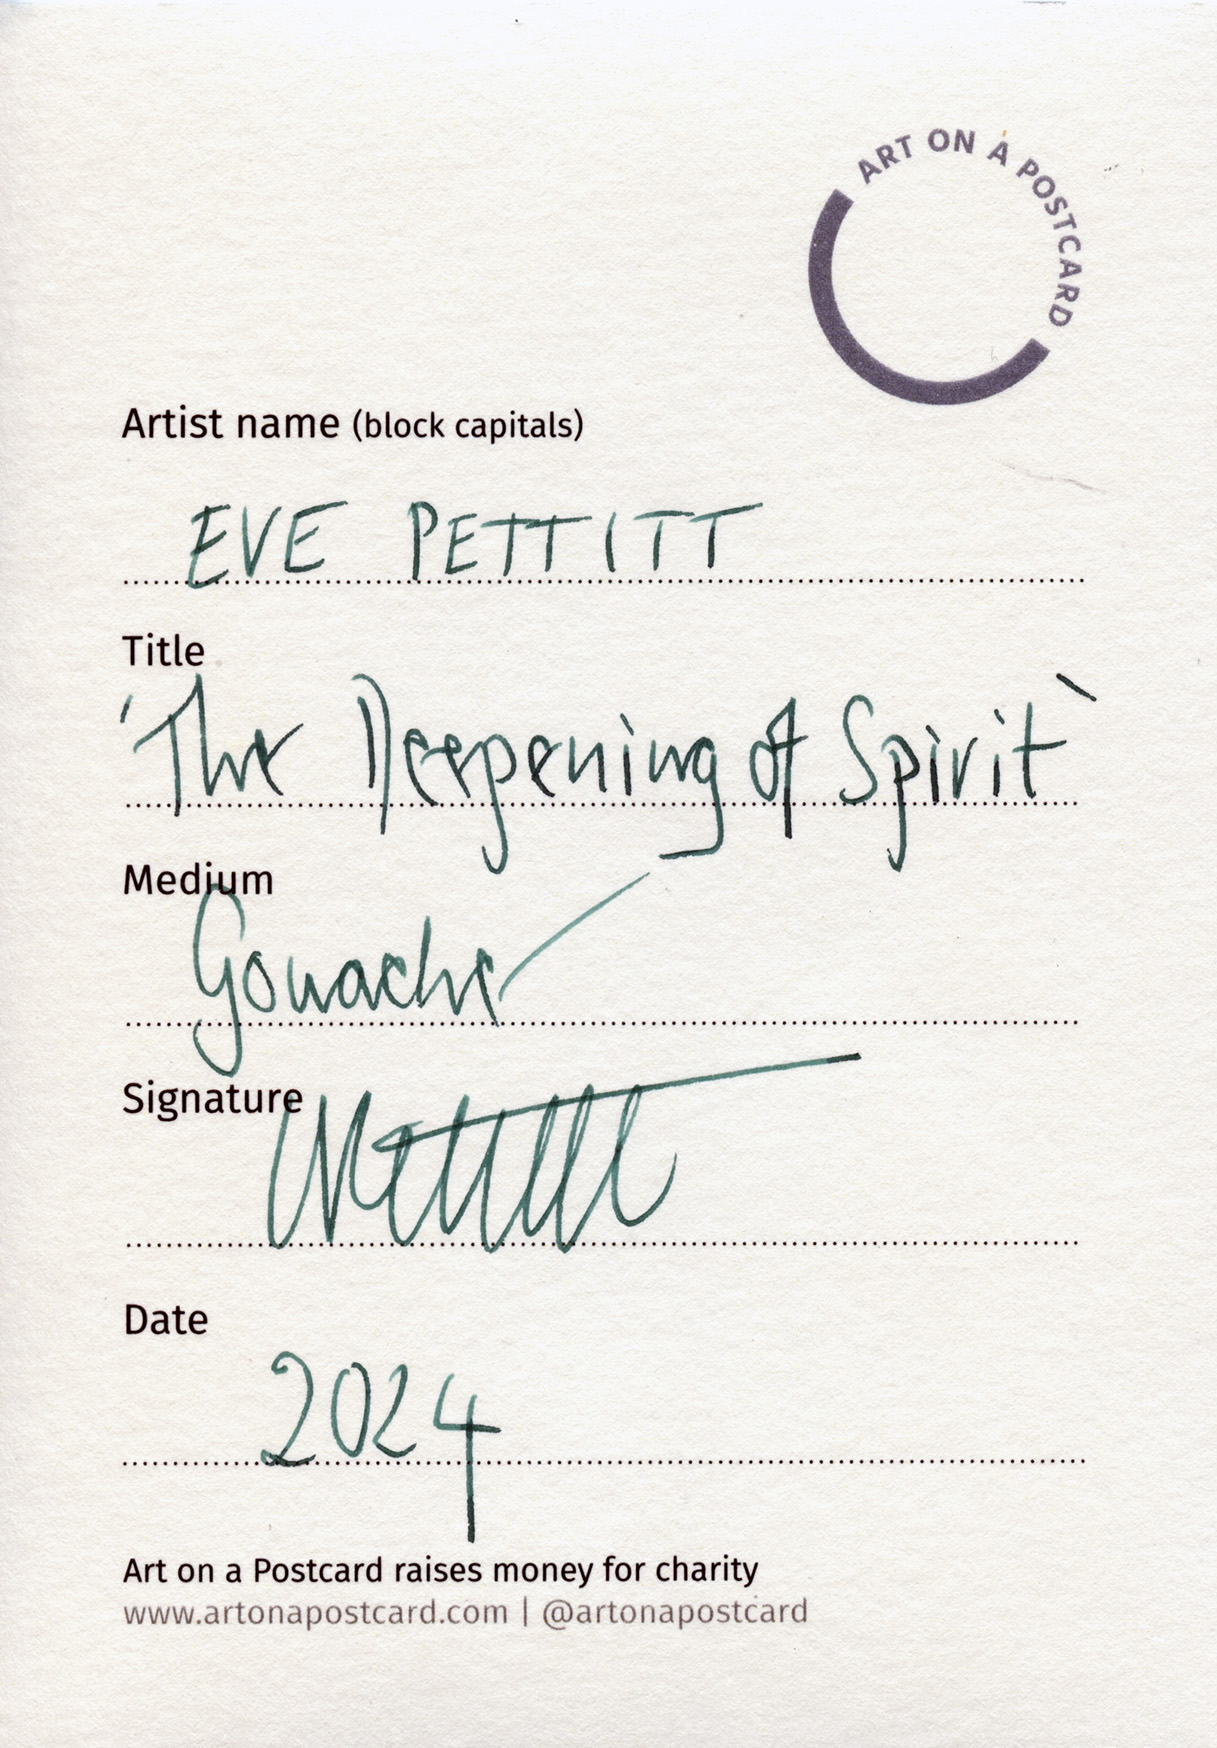 ART ON A POSTCARD
Artist name (block capitals)
EVE PETTITT
Title
'The Deepening of Spirit'
Medium
Gouache
Signature
Date
2024
Art on a Postcard raises money for charity
www.artonapostcard.com | @artonapostcard